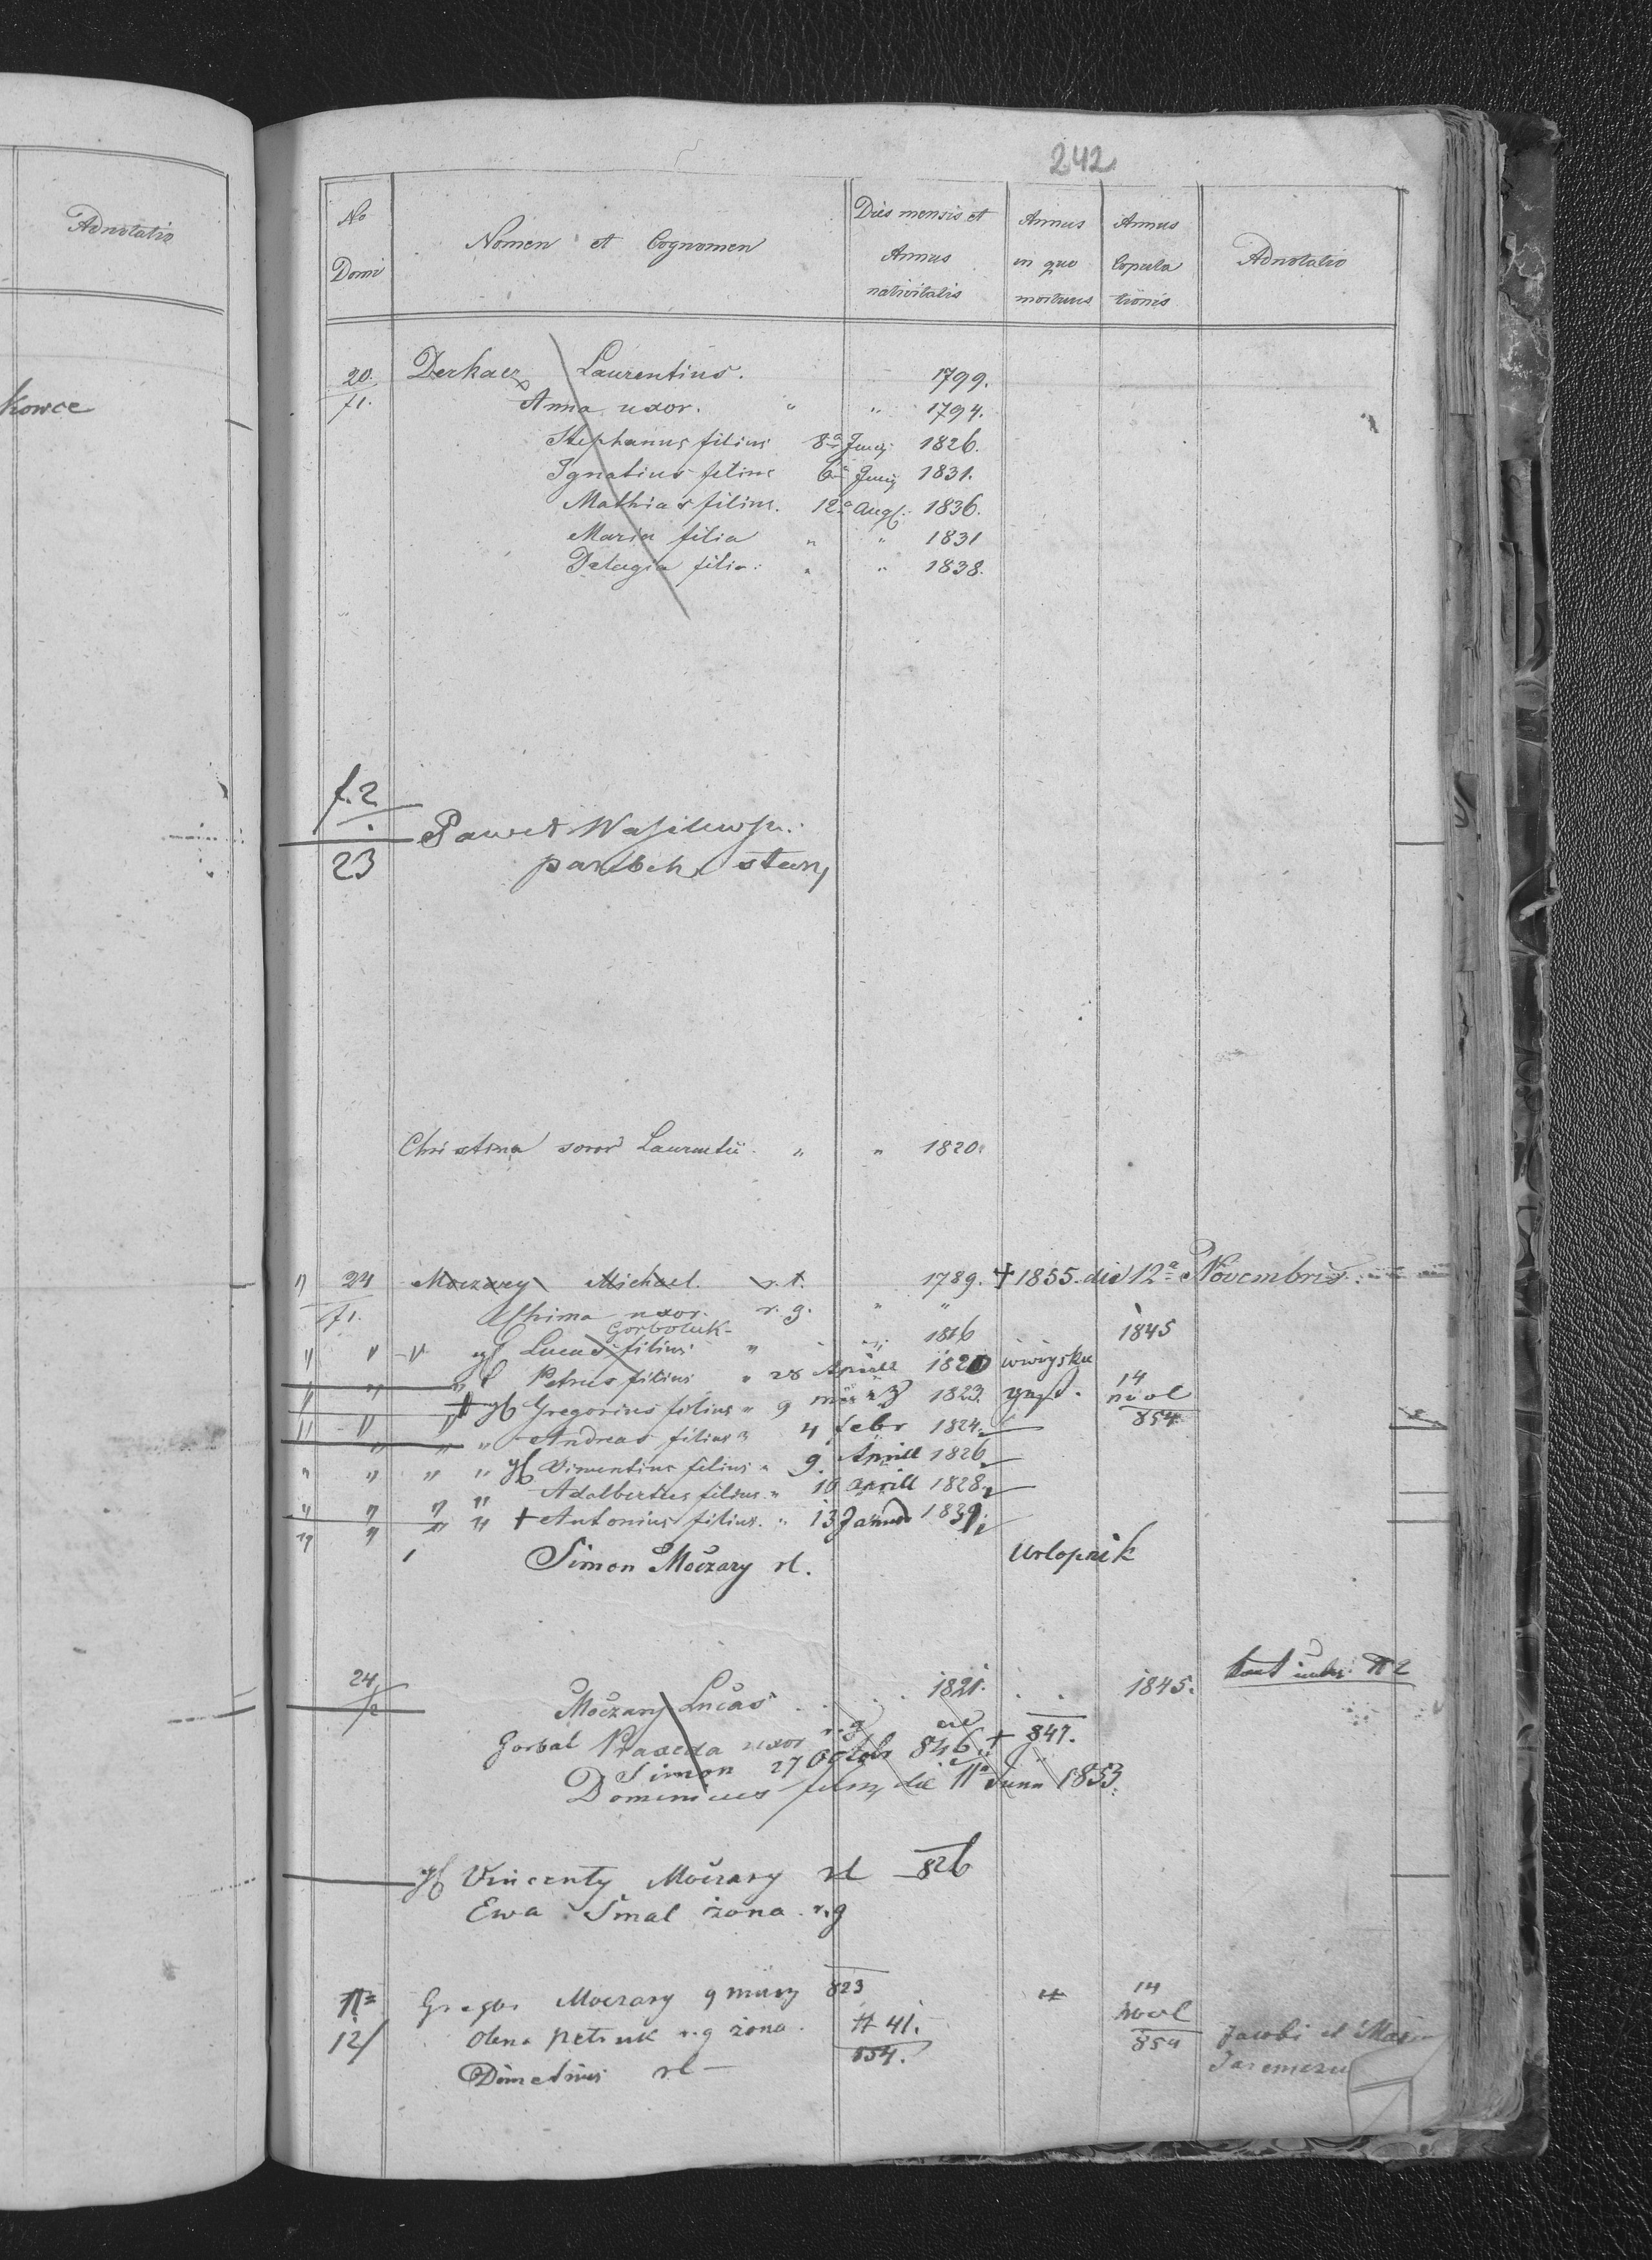 Adnotatio
kowce
242
No Domi
Nomen et Cognomen
Dies mensis et Annus nativitatis
Annus in quo mortuus
Annus Copulationis
Adnotatio
20. Derkacz Laurentius. 1799.
f1. Anna uxor. " " 1794.
Stephanus filius 8a Junij 1826.
Ignatius filius 6a Junij 1831.
Mathias filius. 12a Aug. 1836.
Maria filia " " 1831
Pelagia filia " " 1838.
f. 2
23 Paweł
parobek stary
Christina soror Laurentii " " 1820.
" 24 Moczary Michael. r.l. 1789. + 1855 die 12a Novembris
f1. uxor. r. g. " "
Gorboluk
" " Lucas filius " 1816 1845
" " Petrus filius " 28 Aprill 1820 w woysku
" " + Gregorius filius " 9 März 1823 14 854
" " " Andreas filius " 4 febr 1824
" " " " Vincentius filius " 9. Aprill 1826
" " " Adalbertus filius " 10 aprill 1828
" " " " + Antonius filius. " 13 1839
Simon Moczary rl. Urlopnik
24 Moczary Lucas 1821. 1845.
Gorbal Praxeda uxor r. g
Simon 27 Octobr 846 + 847.
Dominicus die 11a Junii 1853.
Vincenty Moczary rl 826
Ewa Smal żona r.g
Gregor Moczary 9 März 823 14
12/ Olena Petruk r.g żona. 41. 854
Dimetrius rl 854. Jacobi et